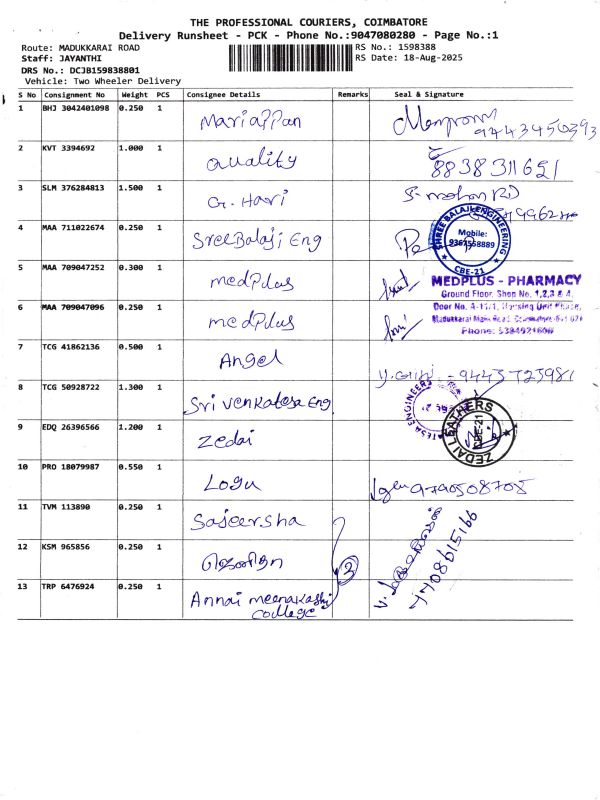 THE PROFESSIONAL COURIERS, COIMBATORE
Delivery Runsheet - PCK - Phone No.:9047080280 - Page No.:1
Route: MADUKKARAI ROAD RS No.: 1598388
Staff: JAYANTHI RS Date: 18-Aug-2025
DRS No.: DCJB159838801
Vehicle: Two Wheeler Delivery
S No Consignment No Weight PCS Consignee Details Remarks Seal & Signature
1 BHJ 3042401098 0.250 1 Mariappan
2 KVT 3394692 1.000 1 Quality 8838311621
3 SLM 376284813 1.500 1 G. Hari S-mohan RD
4 MAA 711022674 0.250 1 Sree Balaji Eng
SHREE BALAJI ENGINEERING
Mobile:
CBE-21
5 MAA 709047252 0.300 1 medplus
MEDPLUS - PHARMACY
Ground Floor, Shop No. 1,2,3 & 4,
6 MAA 709047096 0.250 1 medplus
7 TCG 41862136 0.500 1 Angel
8 TCG 50928722 1.300 1 Sri Venkatesa Eng
9 EDQ 26396566 1.200 1 Zedai
ZEDAI LEATHERS
CBE-21
10 PRO 18079987 0.550 1 Logu 9790508705
11 TVM 113890 0.250 1 Sajeersha
12 KSM 965856 0.250 1
13 TRP 6476924 0.250 1 Annai meenakashi
college
7708615166